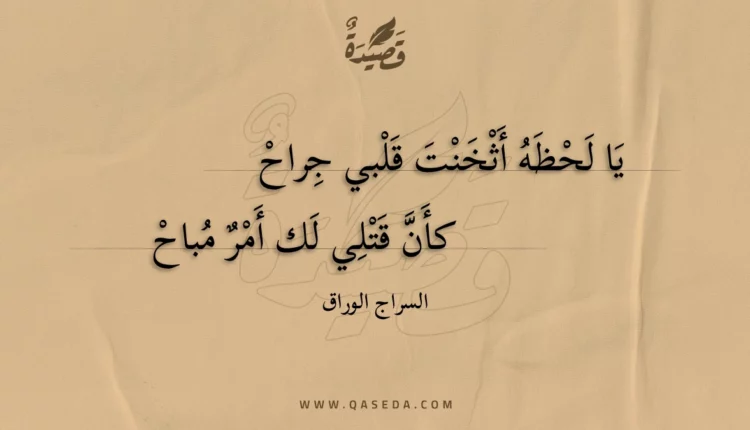 قَصِيْدَةٌ
يَا لَحْظَهُ أَثْخَنْتَ قَلْبي جِراحْ
كأَنَّ قَتْلِي لَك أَمْرٌ مُباحْ
السراج الوراق
WWW.QASEDA.COM